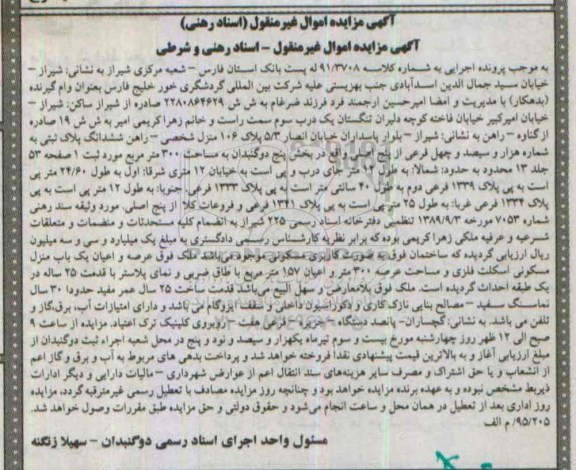 آگهی مزایده اموال غیرمنقول (اسناد رهنی)
آگهی مزایده اموال غیرمنقول – اسناد رهنی و شرطی
به موجب پرونده اجرایی به شماره کلاسه ۹۱/۳۷۰۸ له پست بانک استان فارس – شعبه مرکزی شیراز به نشانی: شیراز –
خیابان سید جمال الدین اسدآبادی جنب بهزیستی علیه شرکت بین المللی گردشگری خور خلیج فارس بعنوان وام گیرنده
(بدهکار) با مدیریت و امضا امیرحسین ارجمند فرد فرزند ضرغام به ش ش ۲۲۸۰۸۶۴۶۲۹ صادره از شیراز ساکن: شیراز –
خیابان امیرکبیر خیابان فاخته کوچه دلیران تنگستان یک درب سوم سمت راست و خانم زهرا کریمی امیر به ش ش ۱۹ صادره
از گناوه – راهن به نشانی: شیراز – بلوار پاسداران خیابان انصار ۵/۳ پلاک ۱۰۶ منزل شخصی – راهن ششدانگ پلاک ثبتی به
شماره هزار و سیصد و چهل فرعی از پنج اصلی واقع در بخش پنج دوگنبدان به مساحت ۳۰۰ متر مربع مورد ثبت ۱ صفحه ۵۳
جلد ۱۳ محدود به حدود: شمالا: به طول ۱۲ متر جای درب و پی است به خیابان ۱۲ متری شرقا: اول به طول ۲۴/۶۰ متر پی
است به پی پلاک ۱۳۳۹ فرعی دوم به طول ۴۰ سانتی متر است به پی پلاک ۱۳۳۳ فرعی جنوبا: به طول ۱۲ متر پی است به پی
پلاک ۱۳۳۴ فرعی غربا: به طول ۲۵ متر پی است به پی پلاک ۱۳۴۱ فرعی و فروعات کلا از پنج اصلی. مورد وثیقه سند رهنی
شماره ۷۰۵۳ مورخه ۱۳۸۹/۹/۳ تنظیمی دفترخانه اسناد رسمی ۲۲۵ شیراز به انضمام کلیه مستحدثات و منضمات و متعلقات
شرعیه و عرفیه ملکی زهرا کریمی بوده که برابر نظریه کارشناس رسمی دادگستری به مبلغ یک میلیارد و سی و سه میلیون
ریال ارزیابی گردیده که ساختمان فوق به صورت کاربری مسکونی موجود می‌باشد ملک فوق عرصه و اعیان یک باب منزل
مسکونی اسکلت فلزی و مساحت عرصه ۳۰۰ متر و اعیان ۱۵۷ متر مربع با طاق ضربی و نمای پلاستر با قدمت ۲۵ ساله در
یک طبقه احداث گردیده است. ملک فوق بلامعارض و سهل البیع می‌باشد قدمت ساخت ۲۵ سال عمر مفید حدودا ۳۰ سال
نماسنگ سفید – مصالح بنایی نازک کاری و دکوراسیون داخلی و سقف ایزوگام می باشد و دارای امتیازات آب، برق، گاز و
تلفن می باشد. به نشانی: گچساران- پانصد دستگاه – جزیره – فرعی هفت – روبروی کلینیک ترک اعتیاد. مزایده از ساعت ۹
صبح الی ۱۲ ظهر روز چهارشنبه مورخ بیست و سوم تیرماه یکهزار و سیصد و نود و پنج در محل شعبه اجراء ثبت دوگنبدان از
مبلغ ارزیابی آغاز و به بالاترین قیمت پیشنهادی نقدا فروخته خواهد شد و پرداخت بدهی های مربوط به آب و برق و گاز اعم
از انشعاب و یا حق اشتراک و مصرف سایر هزینه‌های سند انتقال اعم از عوارض شهرداری – مالیات دارایی و دیگر ادارات
ذیربط مشخص نبوده و به عهده برنده مزایده خواهد بود و چنانچه روز مزایده مصادف با تعطیل رسمی غیرمترقبه گردد، مزایده
روز اداری بعد از تعطیل در همان محل و ساعت انجام می‌شود و حقوق دولتی و حق مزایده طبق مقررات وصول خواهد شد.
۹۵/۲۰۵/ م الف
مسئول واحد اجرای اسناد رسمی دوگنبدان – سهیلا زنگنه